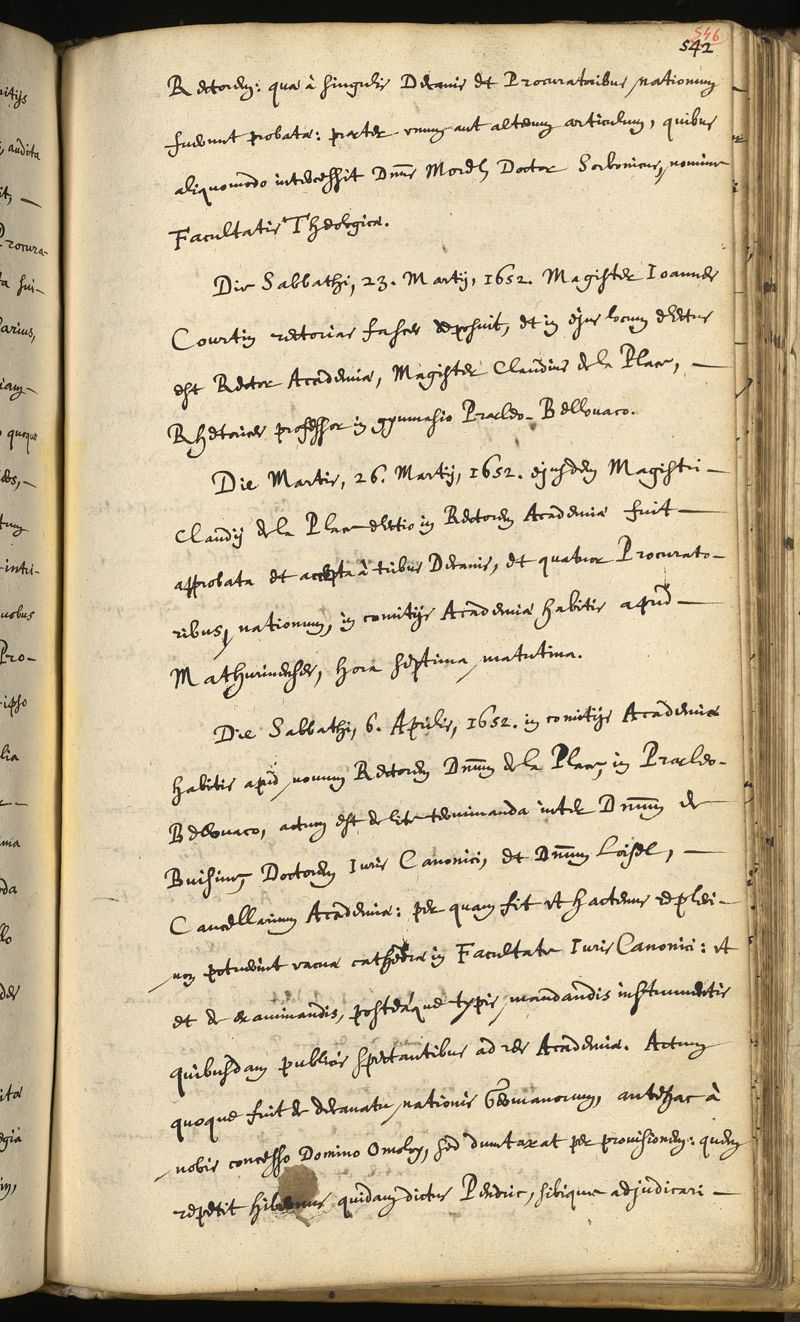 546
542
Rectorem: quæ à singulis Decanis et Procuratoribus nationum
fuerunt probata: præter unum aut alterum articulum, quibus
aliquomodo intercessit Dnus Morel, Doctor Sorbonicus, nomine
Facultatis Theologicæ.
Die Sabbathi, 23. Martij, 1652. Magister Ioannes
Courtin rectorias fasces deposuit, et in ejus locum electus
est Rector Academiæ, Magister Claudius de la Place, —
Rhetorices professor in gymnasio Præleo-Bellovaco.
Die Martis, 26. Martij, 1652. ejusdem Magistri —
Claudij de la Place electio in Rectorem Academiæ fuit —
approbata et accepta à tribus Decanis, et quatuor Procurato-
ribus, nationum, in comitijs Academiæ habitis apud —
Mathurinenses, hora septima matutina.
Die Sabbathi, 6. Aprilis, 1652. in comitijs Academiæ
habitis apud novum Rectorem Dnum de la Place, in Præleo-
Bellovaco, actum est de lite terminanda inter Dnum de
Buisine, Doctorem Iuris Canonici, et Dnum Loisel, —
Cancellarium Academiæ: per quam fit ut hactenus repleri —
non potuerint vacuæ cathedræ in Facultate Iuris Canonici: ut
et de examinandis, posteáque typis mandandis instrumentis
quibusdam publicis spectantibus ad res Academiæ. Actum
quoque fuit de decanatu nationis Germanorum, antehac à
nobis concesso Domino Omoloy, sed dumtaxat per provisionem: quem
repetit Hibernus quidam dictus Pendric, sibique adjudicari —